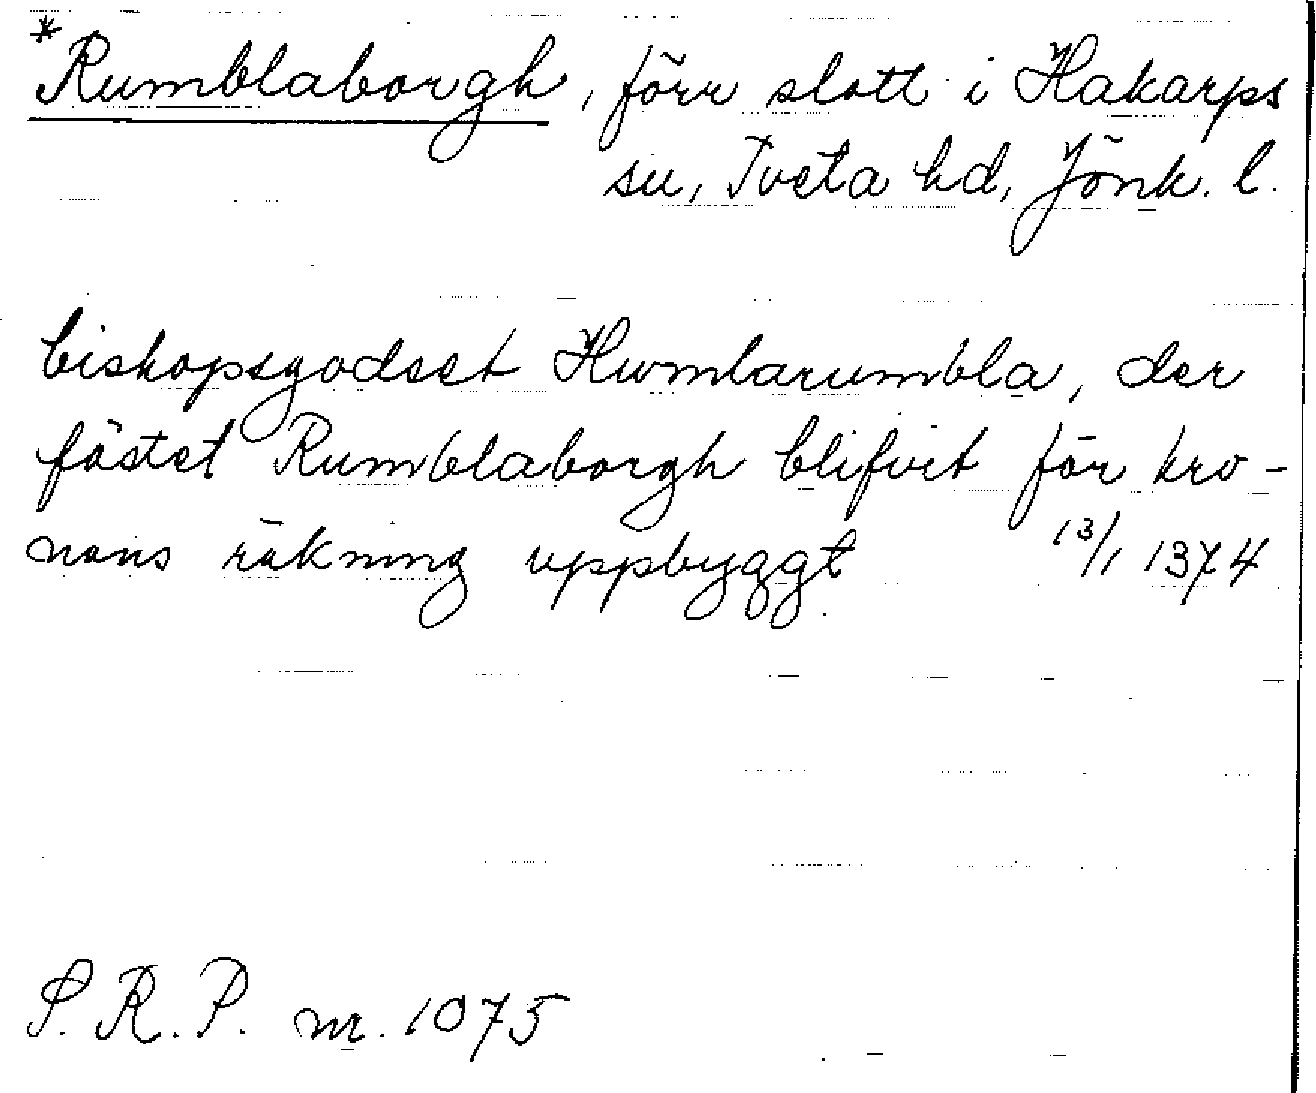 *Rumblaborgh, förr slott i Hakarps
sn, Tveta hd, Jönk. l.
biskopsgodset Humlarumbla, der
fästet Rumblaborgh blifvit för kro-
nans räkning uppbyggt 13/1 1374
S. R. P. nr. 1075